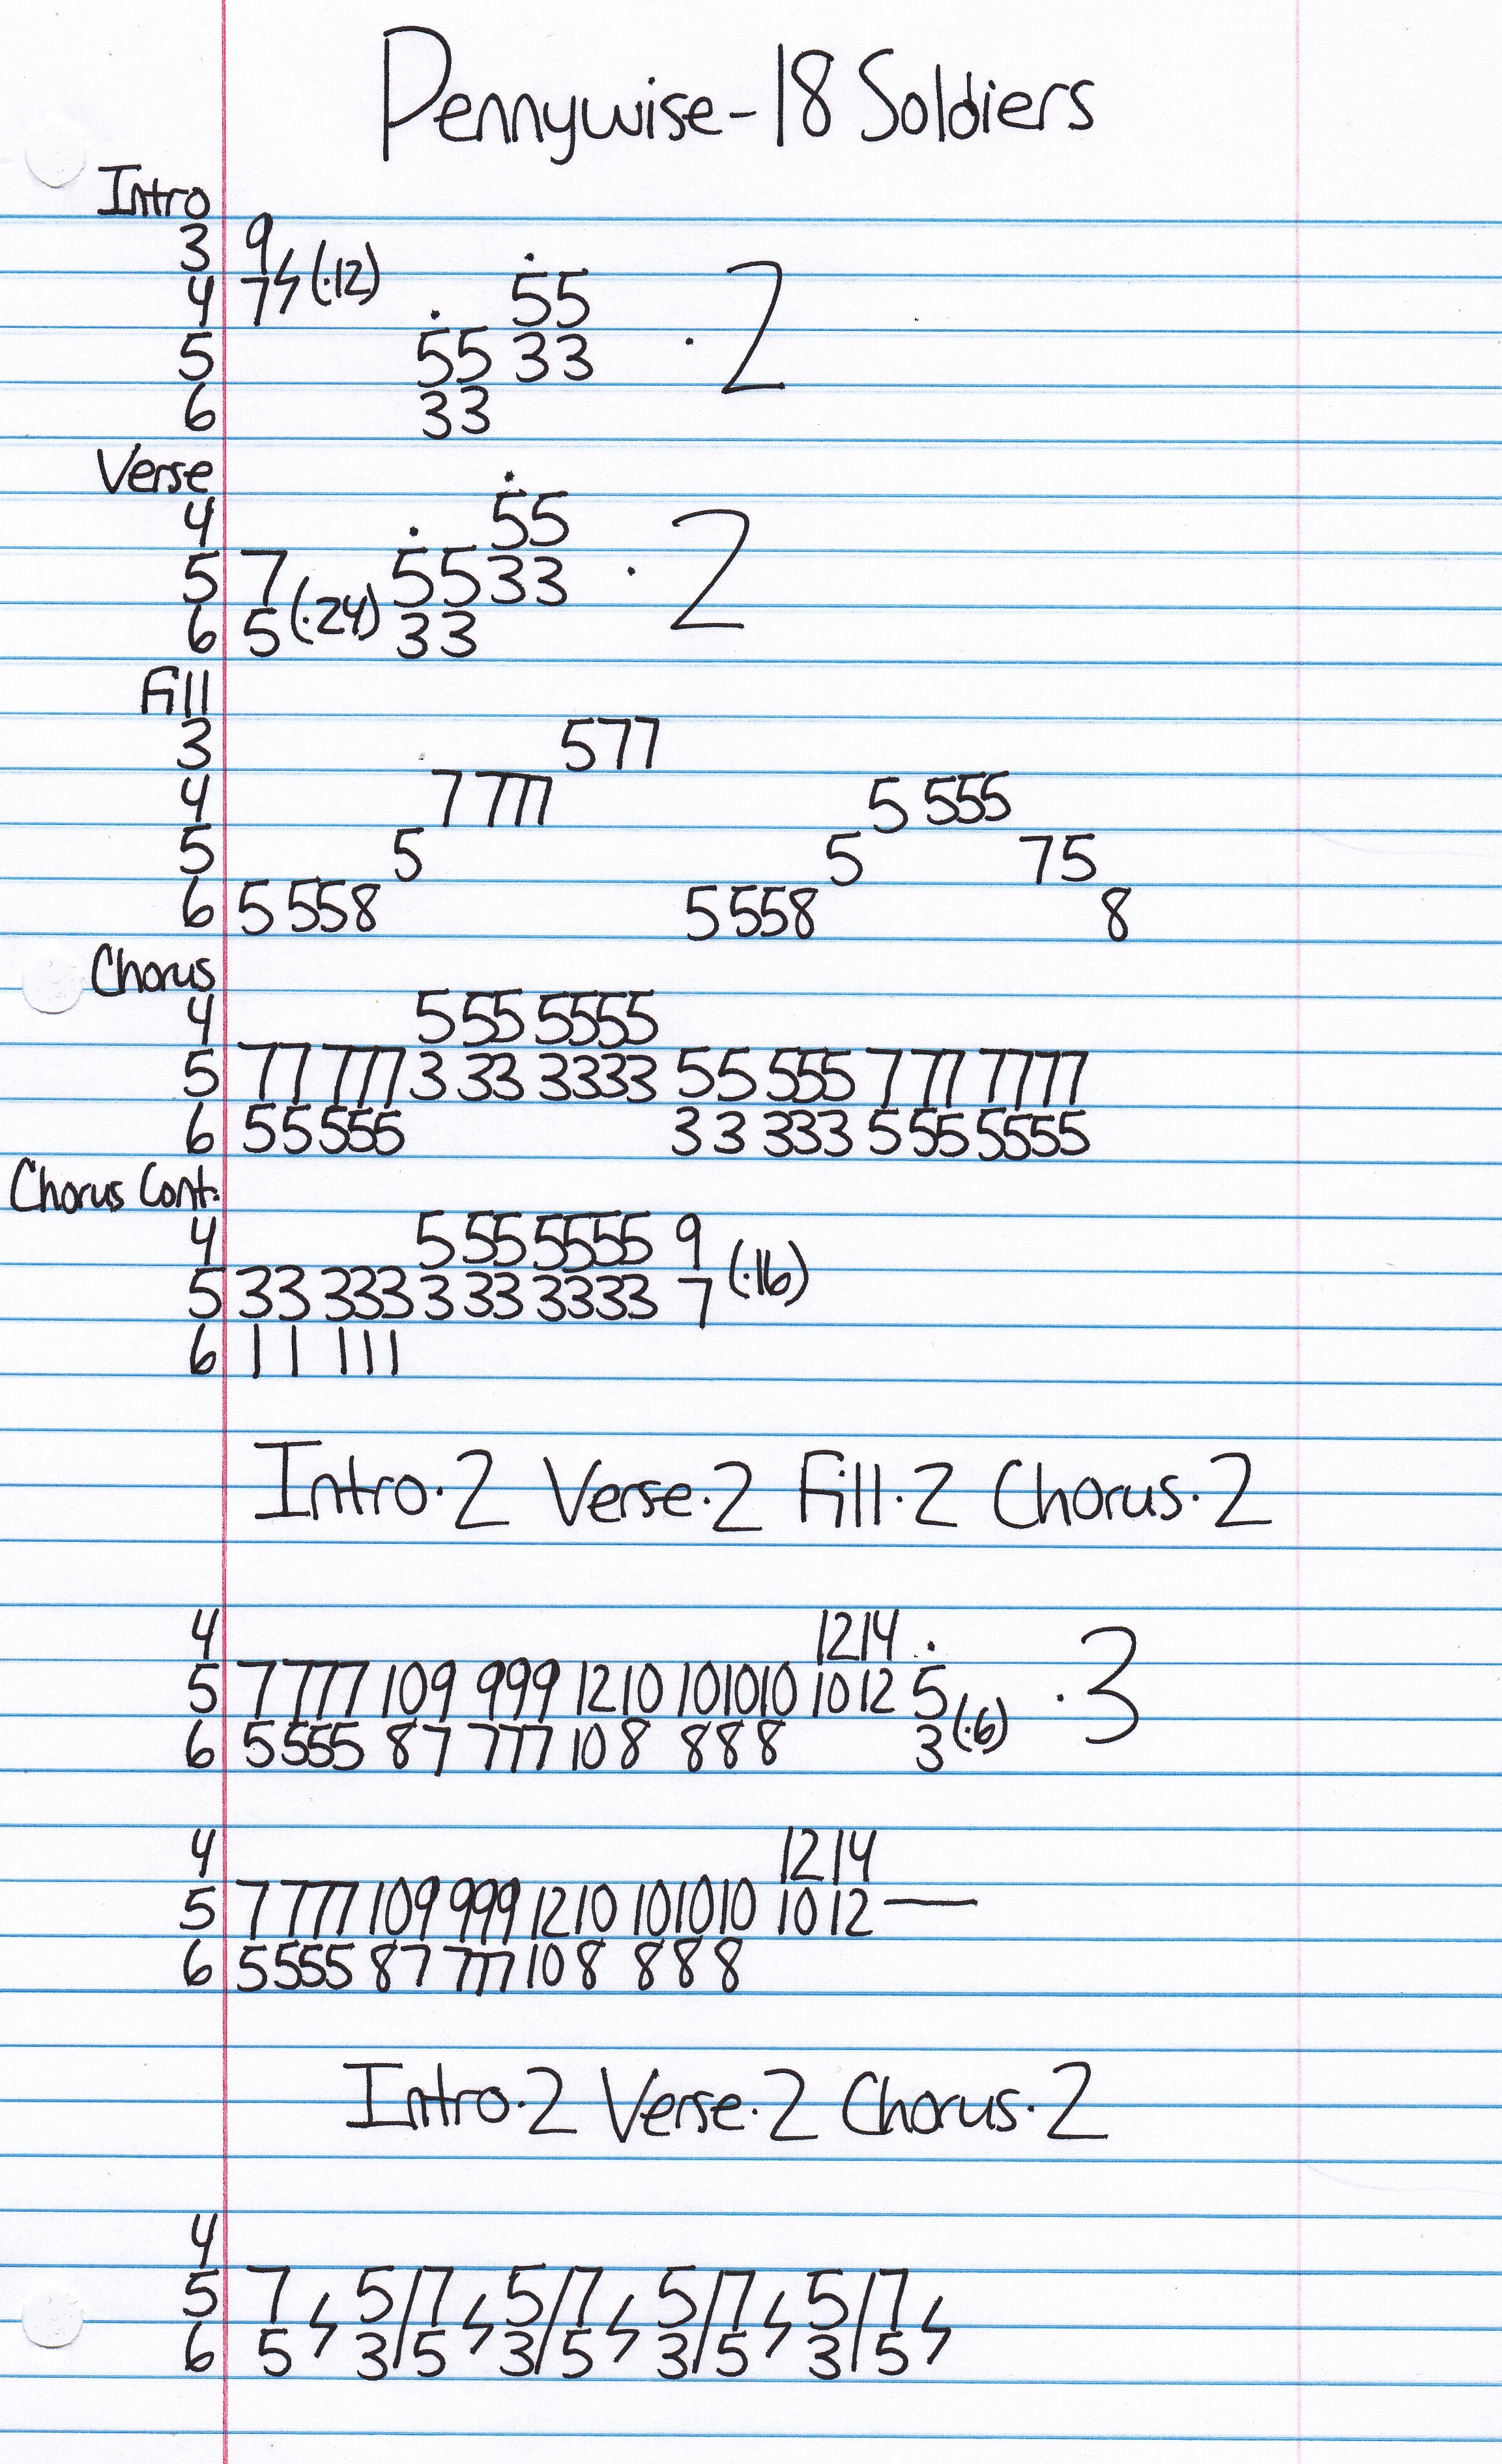 Pennywise-18 Soldiers
Intro
3 9
4 7ϟ(·12) 55
5 55 33 ·2
6 33
Verse
4 55
5 7 55 33 ·2
6 5(·24) 33
Fill
3 577
4 7 777 5 555
5 5 5 75
6 5 558 5 558 8
Chorus
4 5 555 5555
5 77 777 3 33 3333 55 555 7 777 7777
6 55 555 33 333 5 555 5555
Chorus Cont.
4 5 555 5555 9
5 33 333 3 33 3333 7 (·16)
6 11 111
Intro·2 Verse·2 Fill·2 Chorus·2
4 12 14
5 7 777 10 9 999 12 10 10 10 10 10 12 5 ·3
6 5 555 8 7 777 10 8 8 8 8 3(·6)
4 12 14
5 7 777 10 9 999 12 10 10 10 10 10 12 —
6 5 555 8 7 777 10 8 8 8 8
Intro·2 Verse·2 Chorus·2
4
5 7ϟ 5/7ϟ 5/7ϟ 5/7ϟ 5/7ϟ
6 5 3/5 3/5 3/5 3/5